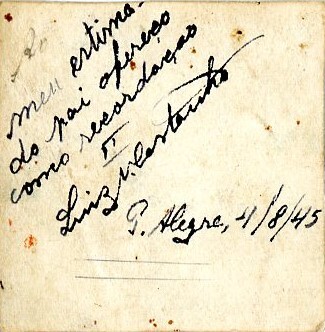 Ao
meu estima-
do pai ofereço
como recordação
Luiz V. Castanho
P. Alegre, 4/8/45